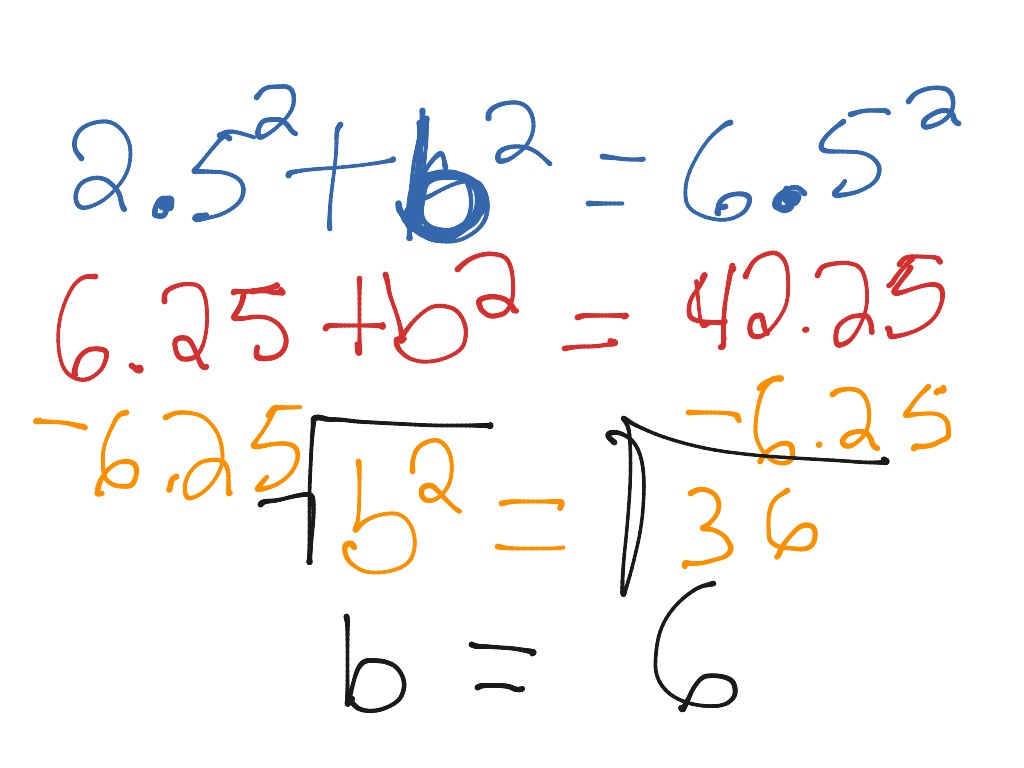 2.5² + b² = 6.5²
6.25 + b² = 42.25
-6.25 -6.25
√b² = √36
b = 6